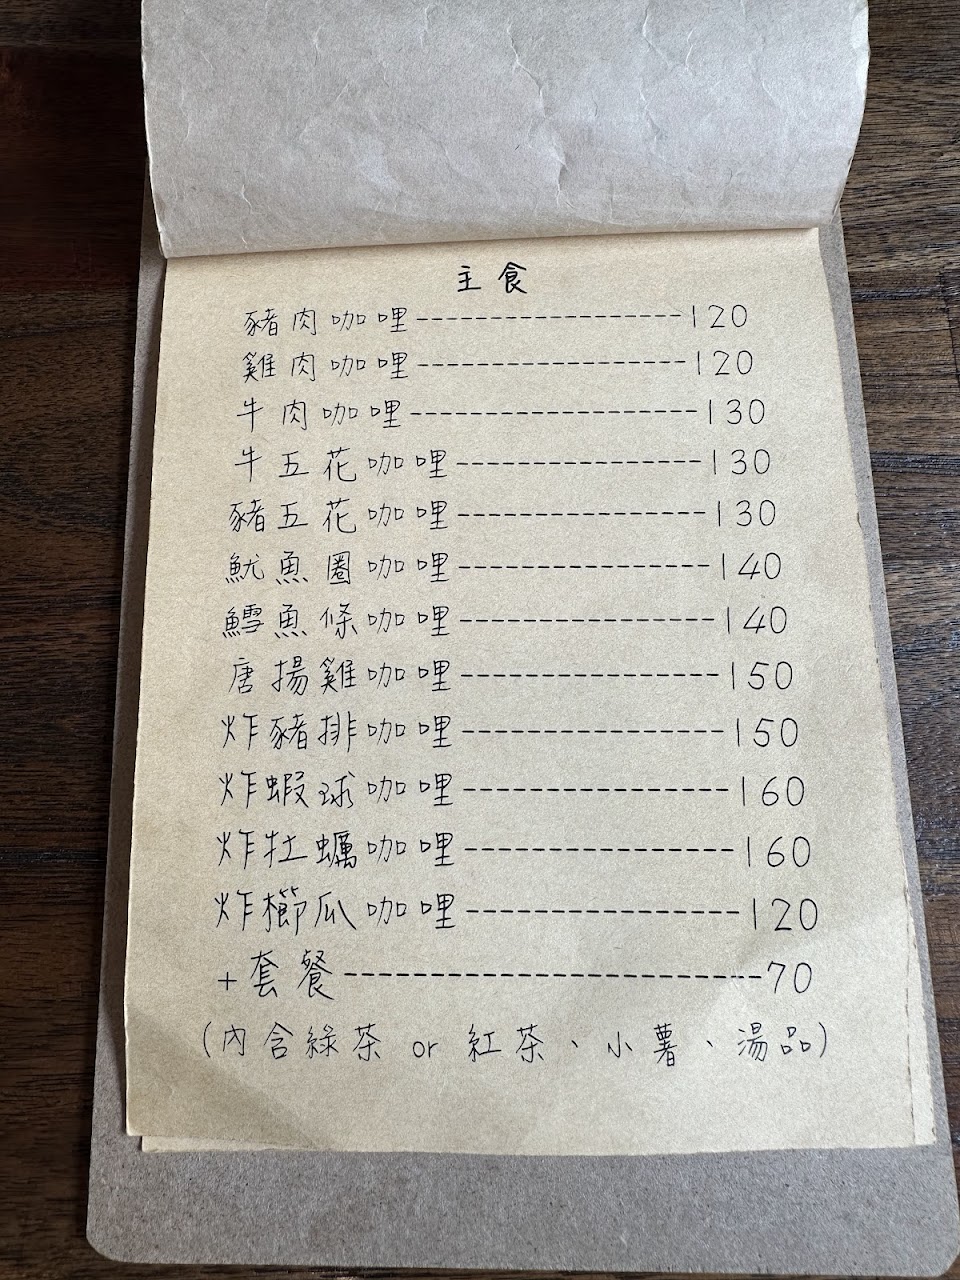 主食
豬肉咖哩-----------------120
雞肉咖哩-----------------120
牛肉咖哩------------------130
牛五花咖哩---------------130
豬五花咖哩---------------130
魷魚圈咖哩---------------140
鱈魚條咖哩---------------140
唐揚雞咖哩---------------150
炸豬排咖哩---------------150
炸蝦球咖哩---------------160
炸牡蠣咖哩---------------160
炸櫛瓜咖哩---------------120
+套餐-------------------------70
(內含綠茶 or 紅茶、小薯、湯品)